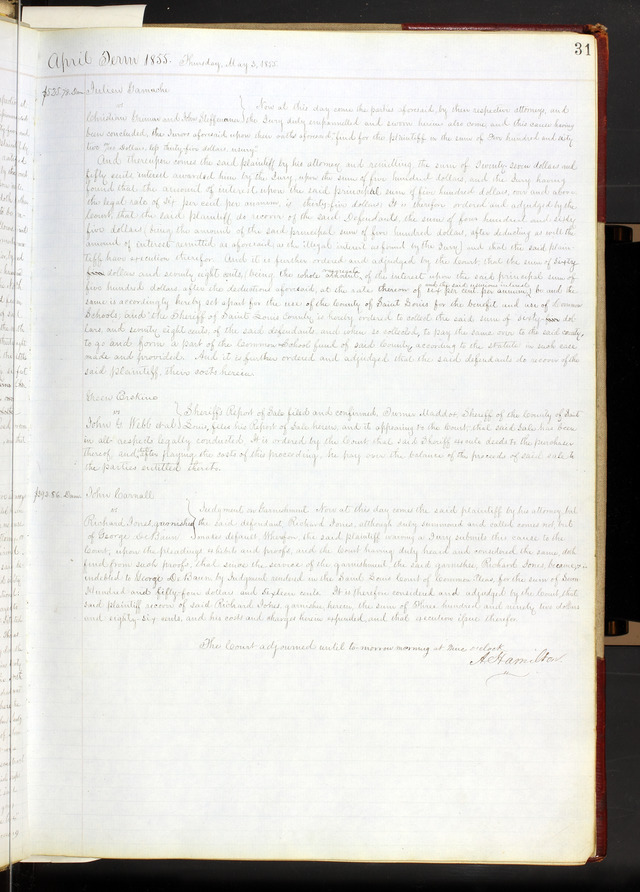 31
April Term 1855. Thursday, May 3, 1855
Julius Damoche
vs
Christian Gruner and John Hoffmann } Now at this day come the parties aforesaid, by their respective attorneys, and
the Jury duly empannelled and sworn herein also come and this cause having
been concluded, the Jurors aforesaid upon their oaths aforesaid "find for the plaintiff in the sum of Five hundred and sixty
two Dollars less thirty five dollars usury"
And thereupon comes the said plaintiff by his attorney and remitting the sum of Twenty seven dollars and
fifty cents interest awarded him by the Jury upon the sum of five hundred dollars, and the Jury having
found that the amount of interest upon the said principal sum of five hundred dollars, over and above
the legal rate of Six per cent per annum is thirty five dollars It is therefore ordered and adjudged by the
Court, that the said plaintiff do recover of the said Defendants, the sum of four hundred and sixty
five dollars (being the amount of the said principal sum of five hundred dollars, after deducting as well the
amount of interest remitted as aforesaid, as the illegal interest as found by the Jury) and that the said plain-
tiff have execution therefor. And it is further ordered and adjudged by the Court that the sum of sixty
dollars and seventy eight cents (being the whole aggregate of the interest upon the said principal sum of
five hundred dollars after the deductions aforesaid, at the rate of six per cent per annum and the said usurious interest) be and the
same is accordingly hereby set apart for the use of the County of Saint Louis for the benefit and use of Common
Schools, and the Sheriff of Saint Louis County is hereby ordered to collect the said sum of sixty dol-
lars and seventy eight cents of the said defendants and when so collected, to pay the same over to the said county,
to go and form a part of the Common School fund of said County according to the statute in such case
made and provided. And it is further ordered and adjudged that the said defendants do recover of the
said plaintiff, their costs herein.
Green Erskine
vs
John C Webb et al } Sheriff's Report of Sale filed and confirmed. Sheriff of the County of Saint
Louis, files his Report of Sale herein, and it appearing to the Court, that said Sale has been
in all respects legally conducted. It is ordered by the Court that said Sheriff make deeds to the purchaser
thereof, and after paying the costs of this proceeding, he pay over the balance of the proceeds of said sale to
the parties entitled thereto.
$392.86 Dam John Carnall
vs
Richard Jones, garnishee
of George De Baun } Judgment on Garnishment. Now at this day comes the said plaintiff by his attorney, but
the said defendant Richard Jones, although duly summoned and called comes not but
makes default Wherefore the said plaintiff waiving a Jury submits this cause to the
Court, upon the pleadings exhibits and proofs, and the Court having duly heard and considered the same doth
find from such proofs, that since the service of the garnishment the said garnishee, Richard Jones, became in-
indebted to George De Baun by Judgment rendered in the Saint Louis Court of Common Pleas, for the sum of Seven
Hundred and fifty-four dollars and Sixteen cents. It is therefore considered and adjudged by the Court, that
said plaintiff recover of said Richard Jones, garnishee herein, the sum of Three hundred and ninety two dollars
and eighty-six cents, and his costs and charges herein expended, and that execution issue therefor.
The Court adjourned until to-morrow morning at Nine o'clock.
A. Hamilton